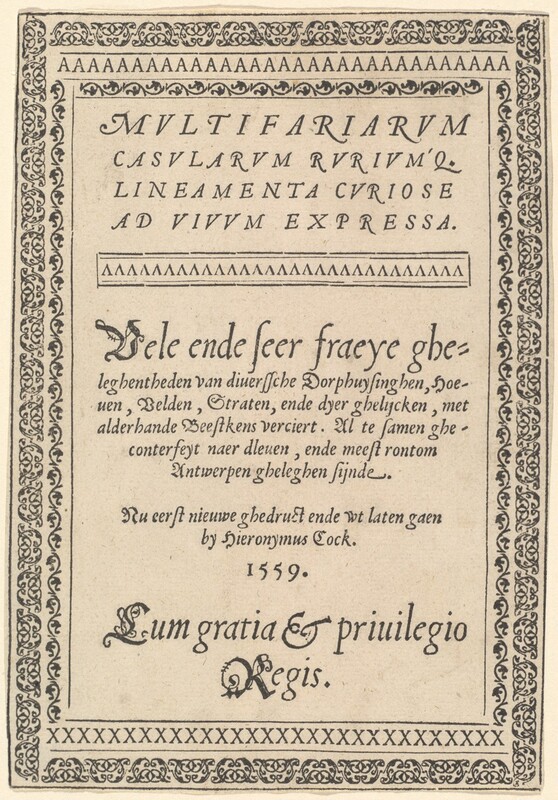 AAAAAAAAAAAAAAAAAAAAAAAAAAAAAA
MVLTIFARIARVM
CASVLARVM RVRIVM'Q.
LINEAMENTA CVRIOSE
AD VIVVM EXPRESSA.
Vele ende ſeer fraeye ghe-
leghentheden van diuerſſche Dorphuyſinghen, Hoe-
uen, Velden, Straten, ende dyer ghelijcken, met
alderhande Beeſtkens verciert. Al te ſamen ghe-
conterfeyt naer dleuen, ende meeſt rontom
Antwerpen gheleghen ſijnde.
Nu eerſt nieuwe ghedruct ende wt laten gaen
by Hieronymus Cock.
1559.
Cum gratia & priuilegio
Regis.
XXXXXXXXXXXXXXXXXXXXXXXXXXXXXX